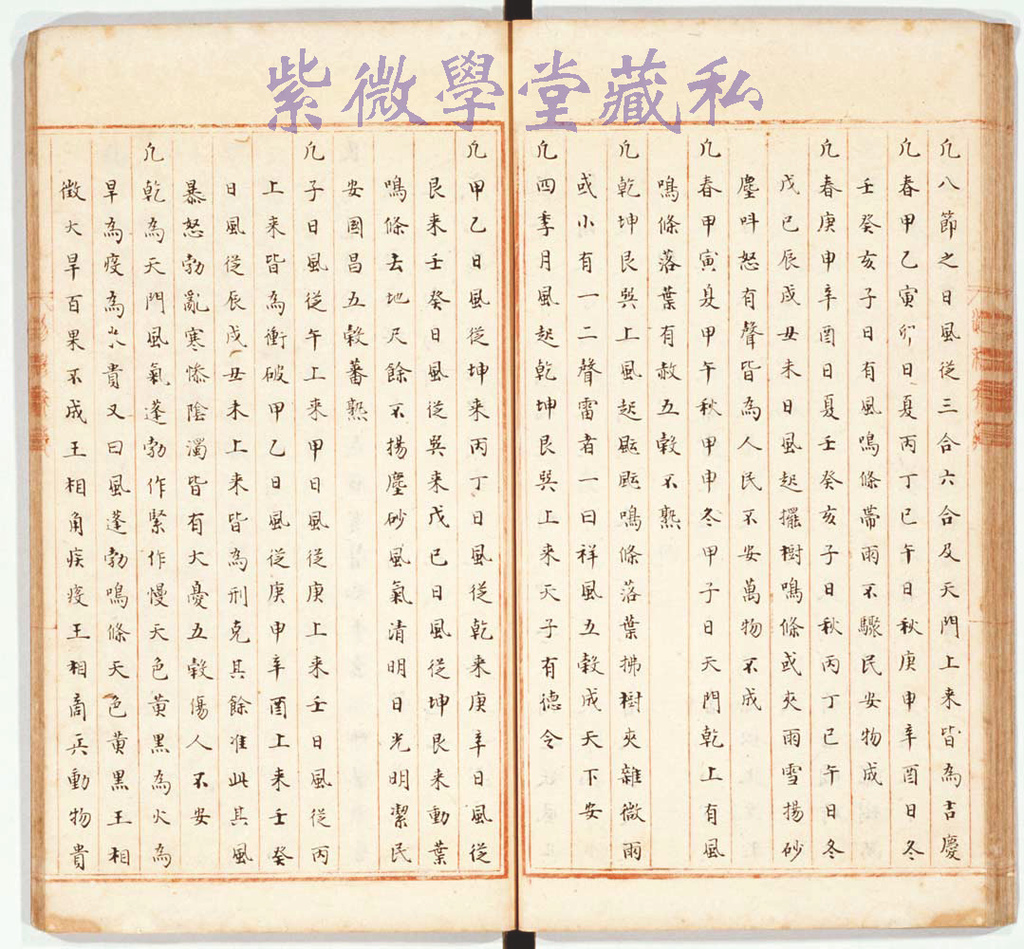 紫微學堂藏私
凡八節之日風從三合六合及天門上来皆為吉慶
凡春甲乙寅夘日夏丙丁巳午日秋庚申辛酉日冬
壬癸亥子日有風鳴條帶雨不驟民安物成
凡春庚申辛酉日夏壬癸亥子日秋丙丁巳午日冬
戊巳辰戌丑未日風起擺樹鳴條或夾雨雪揚砂
塵呌怒有聲皆為人民不安萬物不成
凡春甲寅夏甲午秋甲申冬甲子日天門乾上有風
鳴條落葉有赦五穀不熟
凡乾坤艮巽上風起颭颭鳴條落葉拂樹夾雜微雨
或小有一二聲雷者一曰祥風五穀成天下安
凡四季月風起乾坤艮巽上来天子有德令
凡甲乙日風從坤来丙丁日風從乾来庚辛日風從
艮来壬癸日風從巽来戊巳日風從坤艮来動葉
鳴條去地尺餘不揚塵砂風氣清明日光明潔民
安國昌五穀蕃熟
凡子日風從午上来甲日風從庚上来壬日風從丙
上来皆為衝破甲乙日風從庚申辛酉上来壬癸
日風從辰戌丑未上来皆為刑克其餘准此其風
暴怒勃亂寒慘陰濁皆有大憂五穀傷人不安
凡乾為天門風氣蓬勃作緊作慢天色黃黑為火為
旱為疫為米貴又曰風蓬勃鳴條天色黃黑王相
徵大旱百果不成王相角疾疫王相商兵動物貴